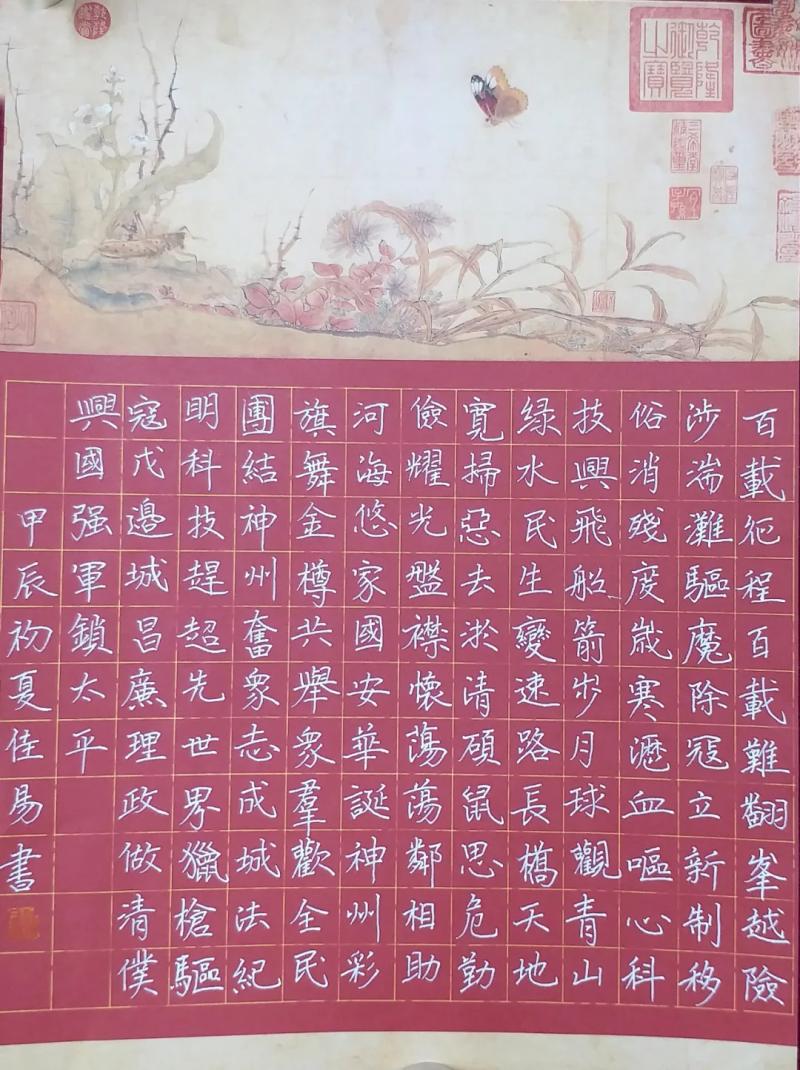 乾隆御覽之寶
三希堂精鑑璽
宜子孫
百載征程百載難翻峯越險
涉湍灘驅魔除寇立新制移
俗消殘度歲寒瀝血嘔心科
技興飛船箭步月球觀青山
绿水民生變速路長橋天地
寬掃惡去淤清碩鼠思危勤
儉耀光盤襟懷蕩蕩鄰相助
河海悠家國安華誕神州彩
旗舞金樽共舉衆羣歡全民
團結神州奮衆志成城法紀
明科技趕超先世界獵槍驅
寇戍邊城昌廉理政做清僕
興國强軍鎖太平
甲辰初夏佳易書